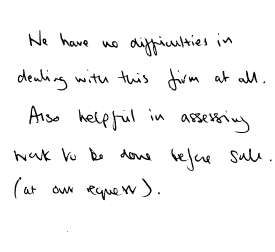 We have no difficulties in
dealing with this firm at all.
Also helpful in assessing
work to be done before sale.
(at our request).